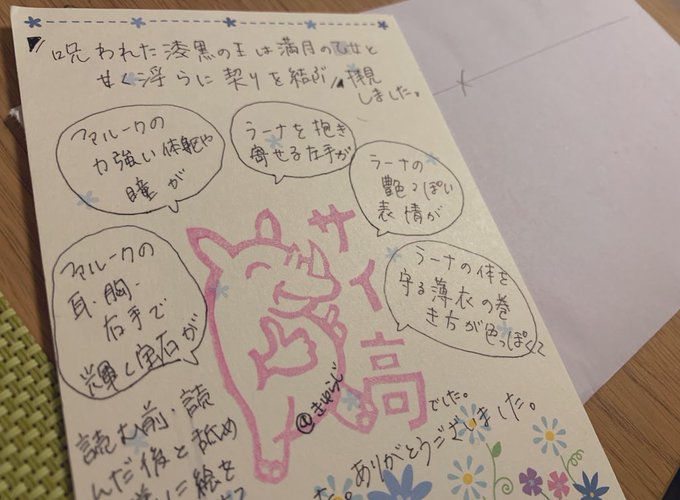 『呪われた漆黒の王は満月の乙女と
甘く淫らに契りを結ぶ』拝見
しました。
ファルークの
力強い体躯や
瞳が
ラーナを抱き
寄せる左手が
ラーナの
艶っぽい
表情が
ファルークの
耳・胸・
右手で
輝く宝石が
ラーナの体を
守る薄衣の巻
き方が色っぽくて
サイ高
でした。
読む前・読
んだ後と舐め
に絵を
た。ありがとうございました。